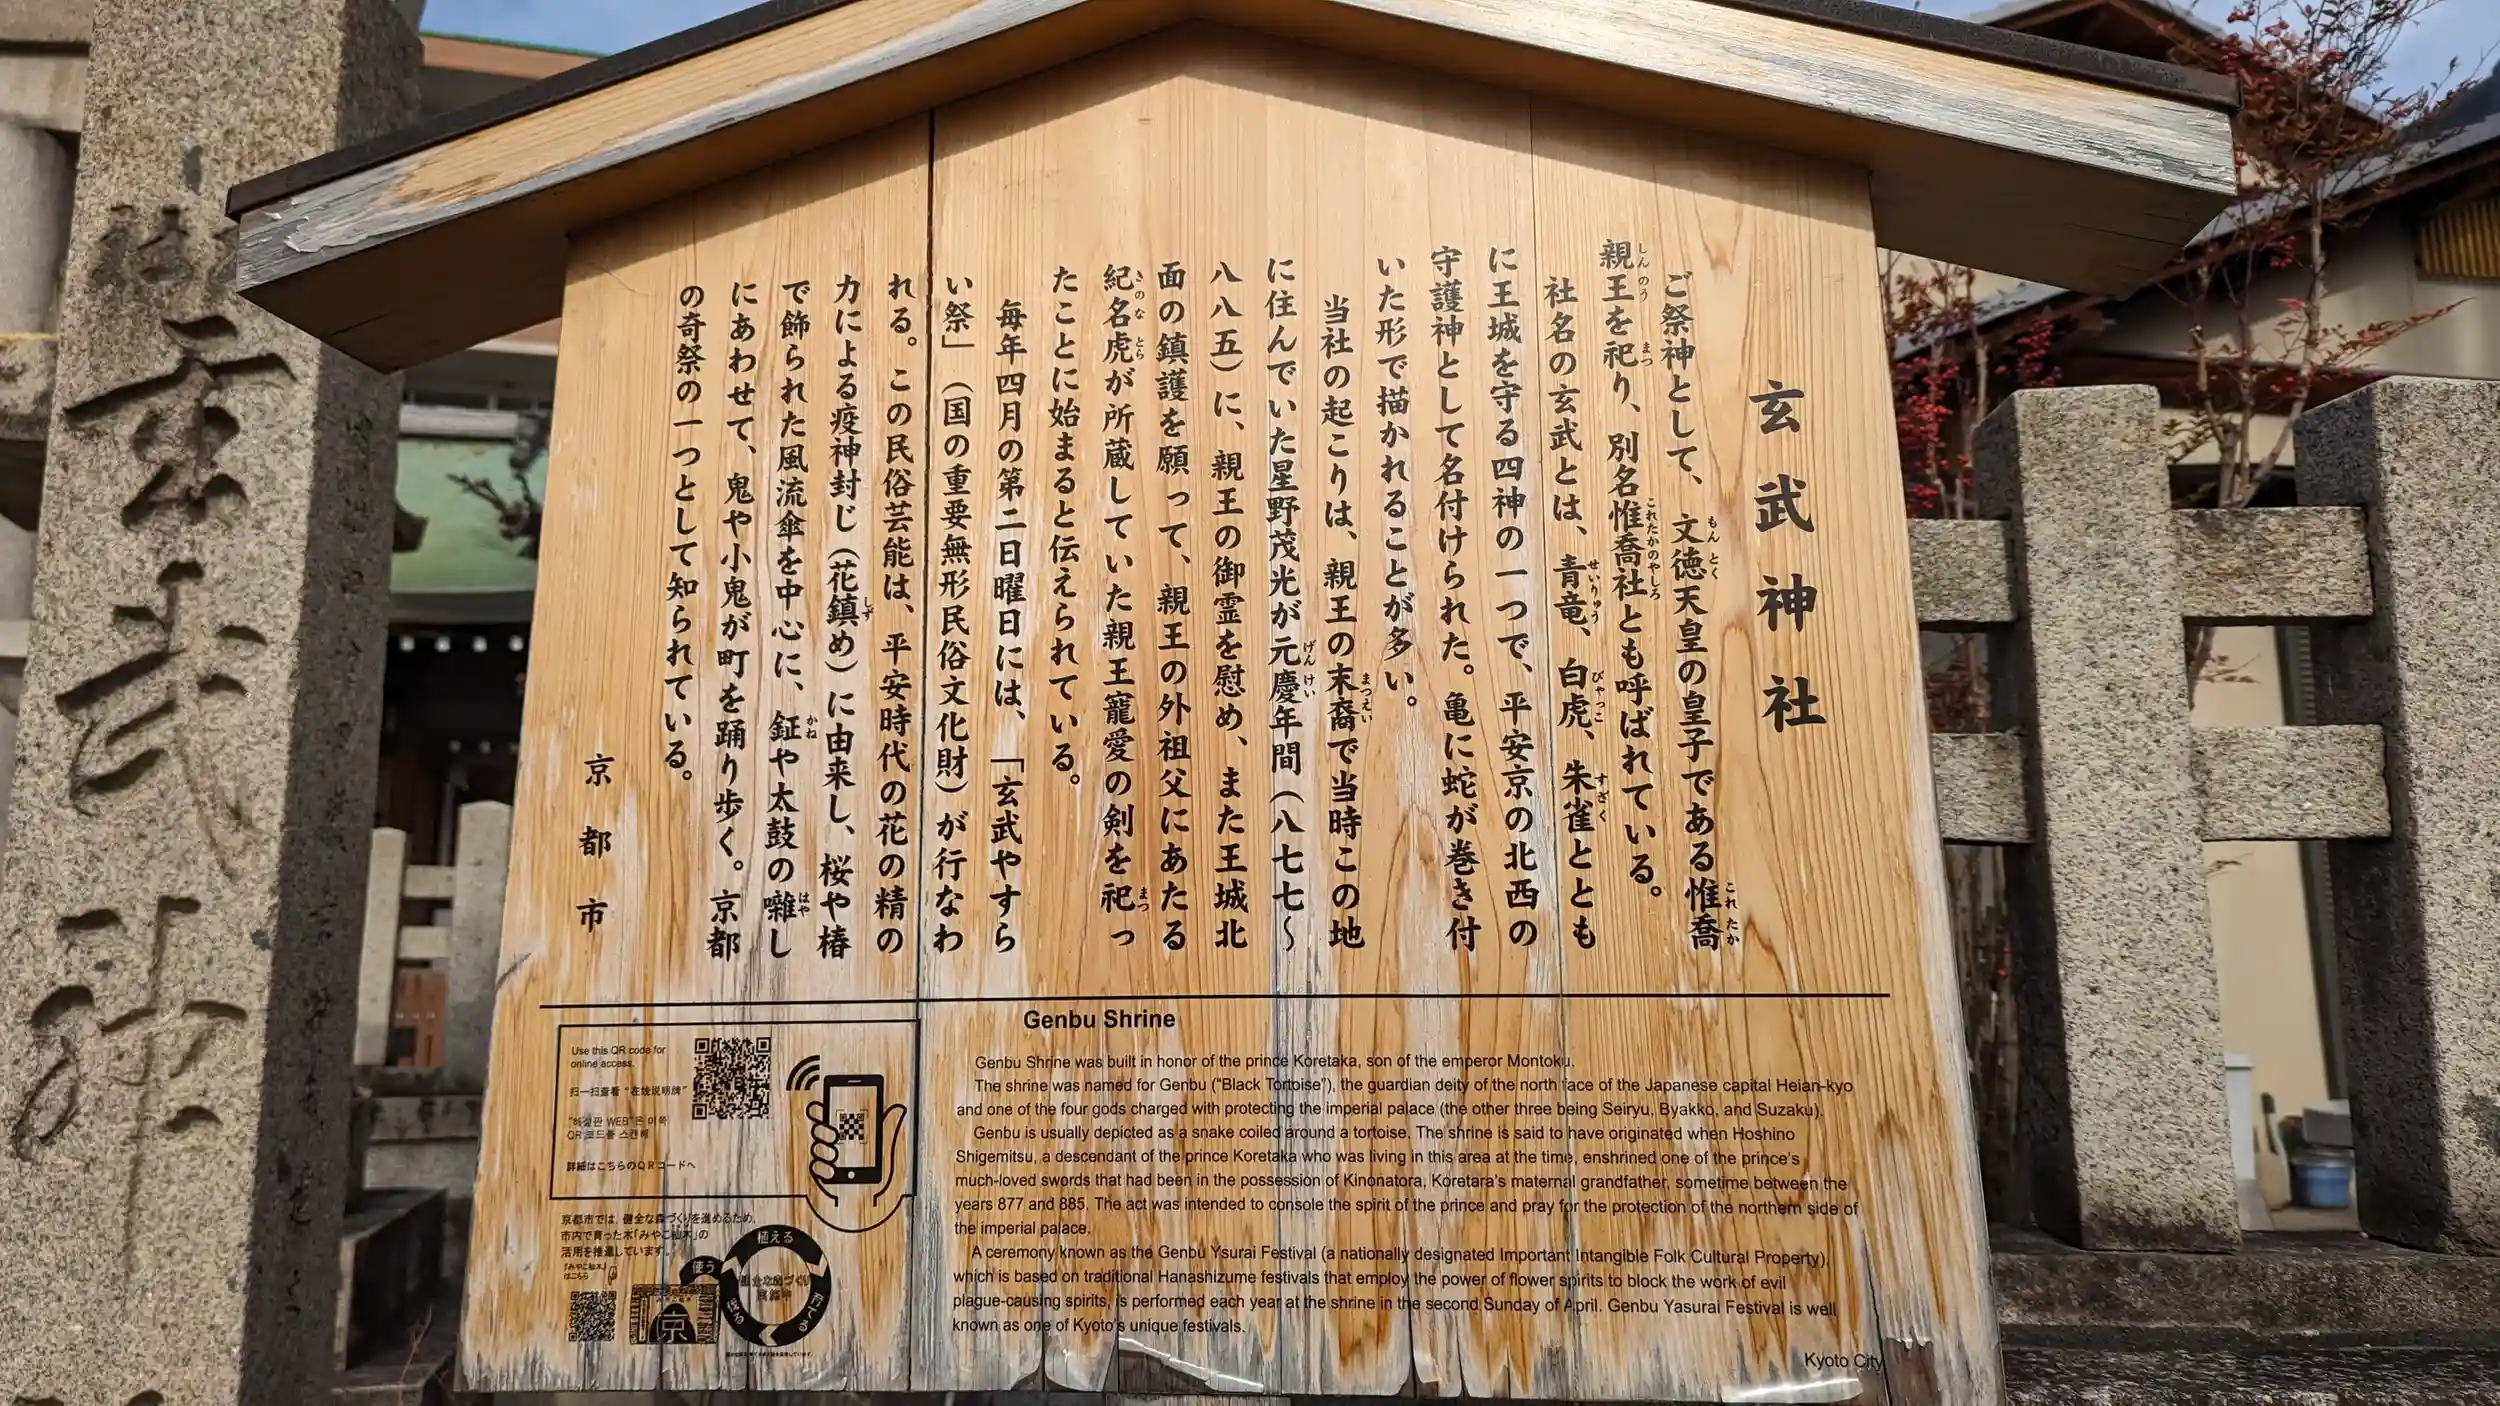 玄武神社
ご祭神として、文徳天皇の皇子である惟喬
親王を祀り、別名惟喬社とも呼ばれている。
社名の玄武とは、青竜、白虎、朱雀ととも
に王城を守る四神の一つで、平安京の北西の
守護神として名付けられた。亀に蛇が巻き付
いた形で描かれることが多い。
当社の起こりは、親王の末裔で当時この地
に住んでいた星野茂光が元慶年間（八七七～
八八五）に、親王の御霊を慰め、また王城北
面の鎮護を願って、親王の外祖父にあたる
紀名虎が所蔵していた親王寵愛の剣を祀っ
たことに始まると伝えられている。
毎年四月の第二日曜日には、「玄武やすら
い祭」（国の重要無形民俗文化財）が行なわ
れる。この民俗芸能は、平安時代の花の精の
力による疫神封じ（花鎮め）に由来し、桜や椿
で飾られた風流傘を中心に、鉦や太鼓の囃し
にあわせて、鬼や小鬼が町を踊り歩く。京都
の奇祭の一つとして知られている。
京都市
Genbu Shrine
Genbu Shrine was built in honor of the prince Koretaka, son of the emperor Montoku.
The shrine was named for Genbu ("Black Tortoise"), the guardian deity of the north face of the Japanese capital Heian-kyo
and one of the four gods charged with protecting the imperial palace (the other three being Seiryu, Byakko, and Suzaku).
Genbu is usually depicted as a snake coiled around a tortoise. The shrine is said to have originated when Hoshino
Shigemitsu, a descendant of the prince Koretaka who was living in this area at the time, enshrined one of the prince's
much-loved swords that had been in the possession of Kinonatora, Koretara's maternal grandfather, sometime between the
years 877 and 885. The act was intended to console the spirit of the prince and pray for the protection of the northern side of
the imperial palace.
A ceremony known as the Genbu Ysurai Festival (a nationally designated Important Intangible Folk Cultural Property),
which is based on traditional Hanashizume festivals that employ the power of flower spirits to block the work of evil
plague-causing spirits, is performed each year at the shrine in the second Sunday of April. Genbu Yasurai Festival is well
known as one of Kyoto's unique festivals.
Kyoto City
Use this QR code for
online access.
扫一扫查看"在线说明牌"
"해설판 WEB"은 이쪽
QR 코드를 스캔해
詳細はこちらのQRコードへ
京都市では、健全な森づくりを進めるため、
市内で育った木「みやこ杣木」の
活用を推進しています。
「みやこ杣木」
はこちら
植える
育てる
伐る
使う
京
玄武神